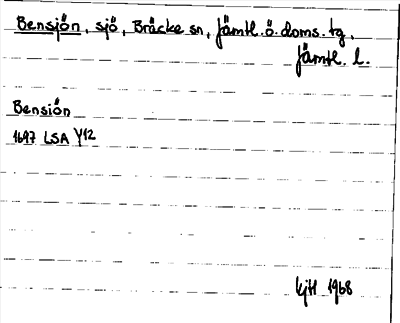 Bensjön, sjö, Bräcke sn, Jämtl. ö. doms. tg,
Jämtl. l.
Bensiön
1697 LSA Y12
KjH 1968